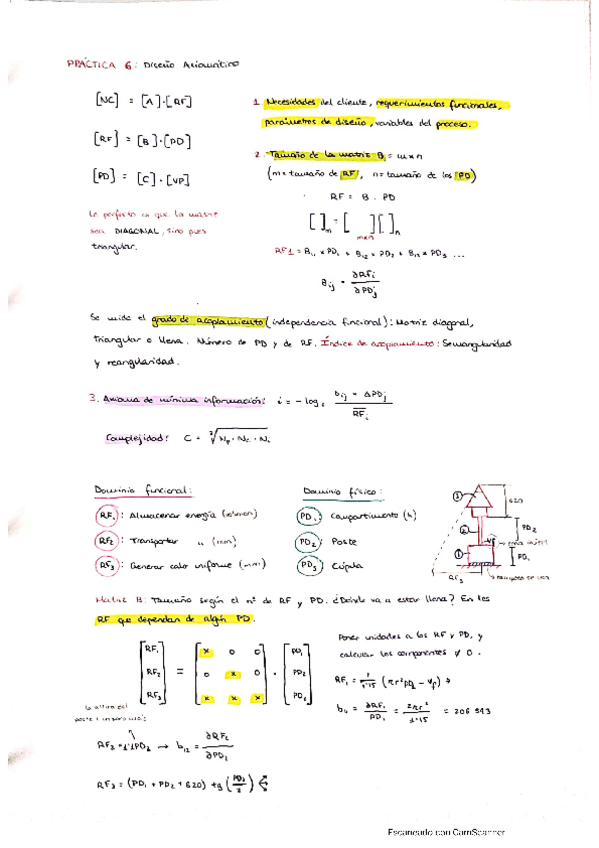 PRÁCTICA 6: Diseño Axiomático
[NC] = [A]·[RF]
[RF] = [B]·[PD]
[PD] = [C]·[VP]
Lo perfecto es que la matriz
sea DIAGONAL, sino pues
triangular.
1. Necesidades del cliente, requerimientos funcionales,
parámetros de diseño, variables del proceso.
2. Tamaño de la matriz B = m x n
(m = tamaño de RF, n = tamaño de los PD)
RF = B · PD
[ ]m = [ ]mxn [ ]n
RF1 = B11 x PD1 + B12 x PD2 + B13 x PD3 ...
Bij = ∂RFi / ∂PDj
Se mide el grado de acoplamiento (independencia funcional): Matriz diagonal,
triangular o llena. Número de PD y de RF. Índice de acoplamiento: Semangularidad
y reangularidad.
3. Axioma de mínima información: i = - log2 bij · ΔPDj / RFi
Complejidad: C =
Dominio funcional:
RF1: Almacenar energía
RF2: Transportar " (mm)
RF3: Generar calor uniforme (mm)
Dominio físico:
PD1: Compartimento (h)
PD2: Poste
PD3: Cúpula
3
2
1
620
PD2
PD1
RF3
Matriz B: Tamaño según el nº de RF y PD. ¿Dónde va a estar llena? En los
RF que dependan de algún PD.
[RF1 RF2 RF3] = [x 0 0; 0 x 0; x x x] · [PD1 PD2 PD3]
Poner unidades a los RF y PD, y
calcular los componentes ≠ 0.
RF1 = 1/1'15 (πr²PD1 - Vp) →
b11 = ∂RF1 / PD1 = 2πr² / 1'15 = 206 543
la altura del
RF2 = 1'1PD2 → b12 = ∂RF2 / ∂PD2
RF3 = (PD1 + PD2 + 620) tg (PD3/2)
Escaneado con CamScanner